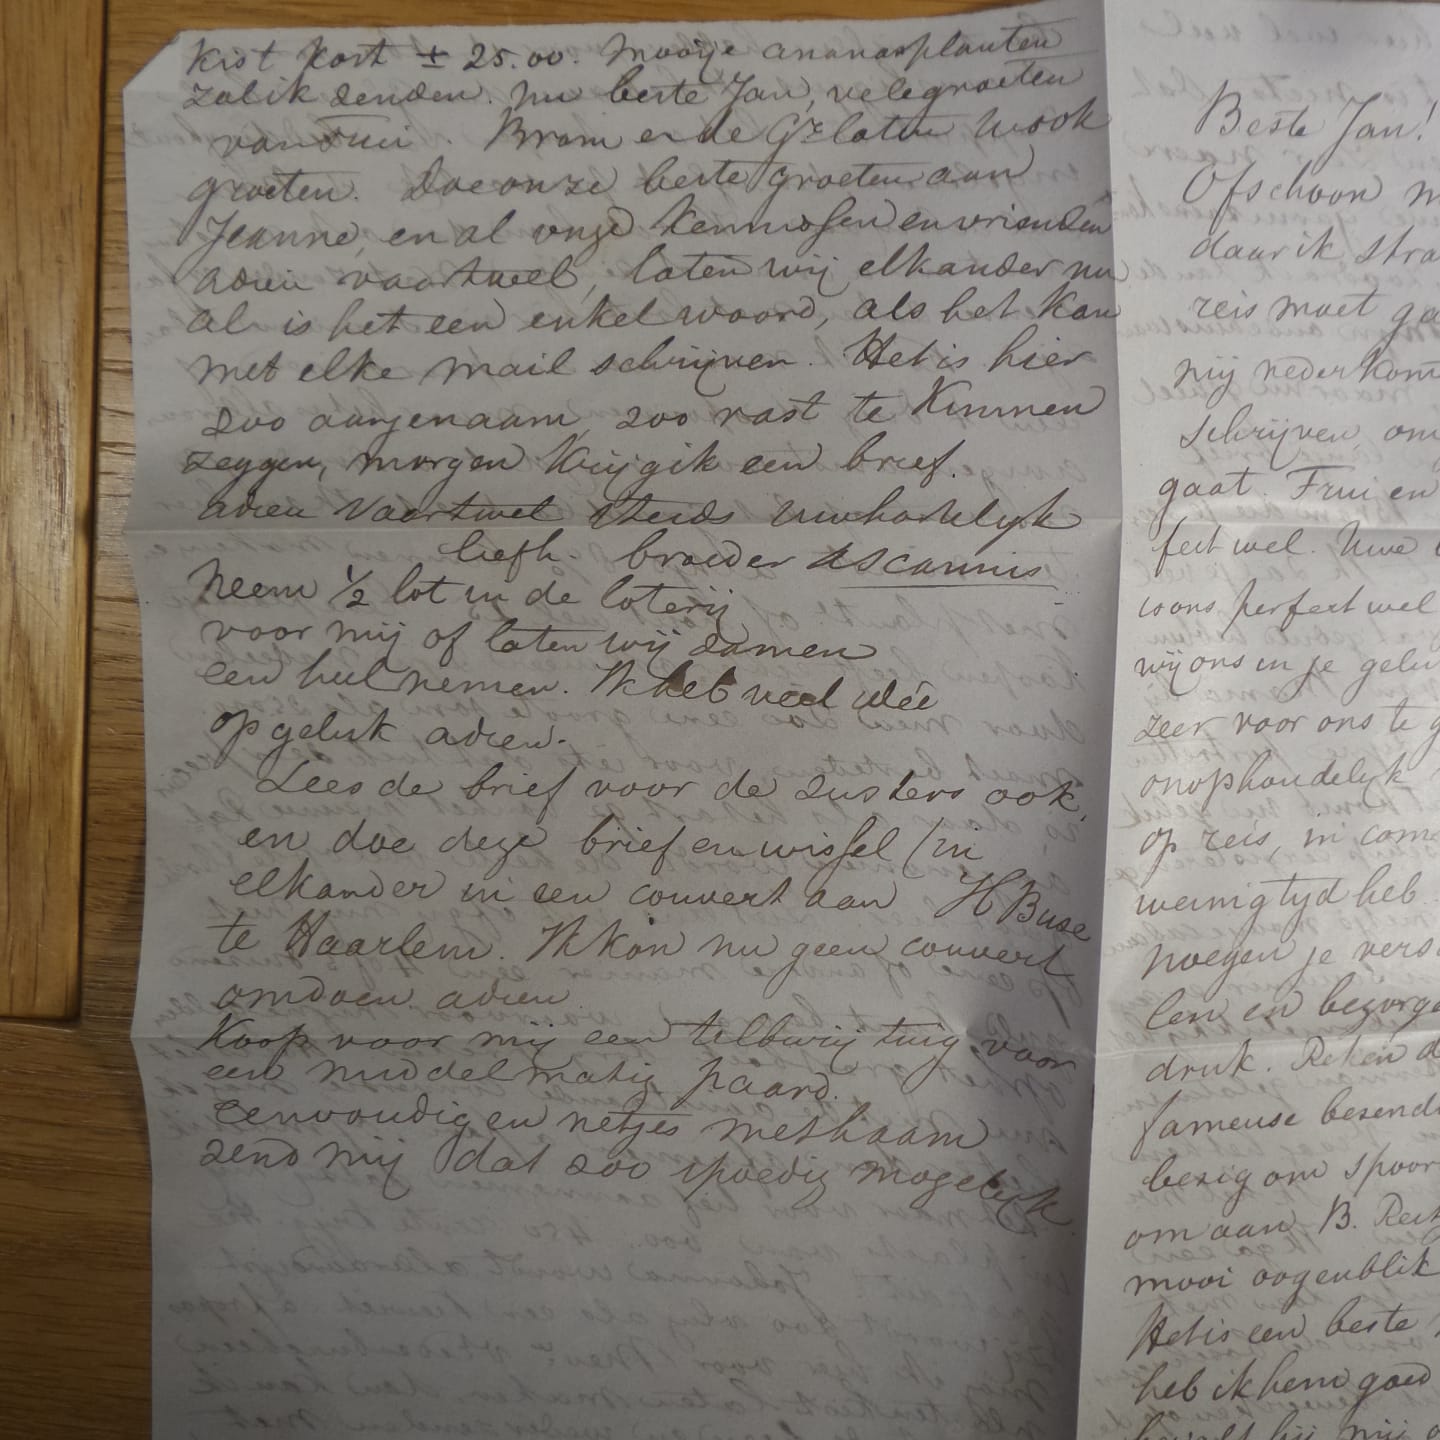 Kist kost ± 25.00. Mooije ananasplanten
zal ik zenden. Nu beste Jan, vele groeten
van Frui. Bram en de Gz laten U ook
groeten. Doe onze beste groeten aan
Jeanne, en al onze kennissen en vrienden
adieu vaartwel, laten wij elkander nu
al is het een enkel woord, als het kan
met elke mail schrijven. Het is hier
zoo aangenaam, zoo vast te kunnen
zeggen, morgen krijg ik een brief.
adieu Vaartwel steeds Uwhartelijk
liefh. broeder Ascannis
Neem 1/2 lot in de loterij
voor mij of laten wij samen
een heel nemen. Ik heb veel idée
op geluk adieu.
Lees de brief voor de zusters ook,
en doe deze brief en wissel (in
elkander in een couvert aan H Buse
te Haarlem. Ik kon nu geen couvert
omdoen adieu
Koop voor mij een tilburij tuig voor
een middelmatig paard.
eenvoudig en netjes met haam
zend mij dat zoo spoedig mogelijk
Beste Jan!
Ofschoon m
daar ik stra
reis moet ga
mij nederkom
schrijven, om
gaat. Frui en
fect wel. Uwe
is ons perfect wel
wij ons in je gelu
zeer voor ons te g
onophoudelijk
op reis, in com
weinig tijd heb
noegen je vers
len en bezorg
druk. Reken d
fameuse bezend
bezig om spoor
om aan B. Rest
mooi oogenblik
Het is een beste
heb ik hem goed